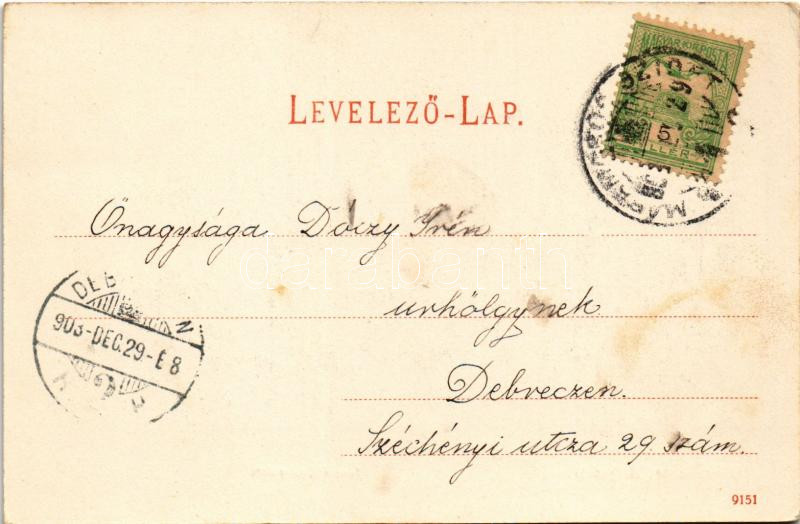 LEVELEZŐ-LAP.
MAGYAR KIR. POSTA
5
Önagysága Dóczy Irén
urhölgynek
Debreczen.
Széchényi utcza 29 szám.
903-DEC.29-É8
9151
darabanth